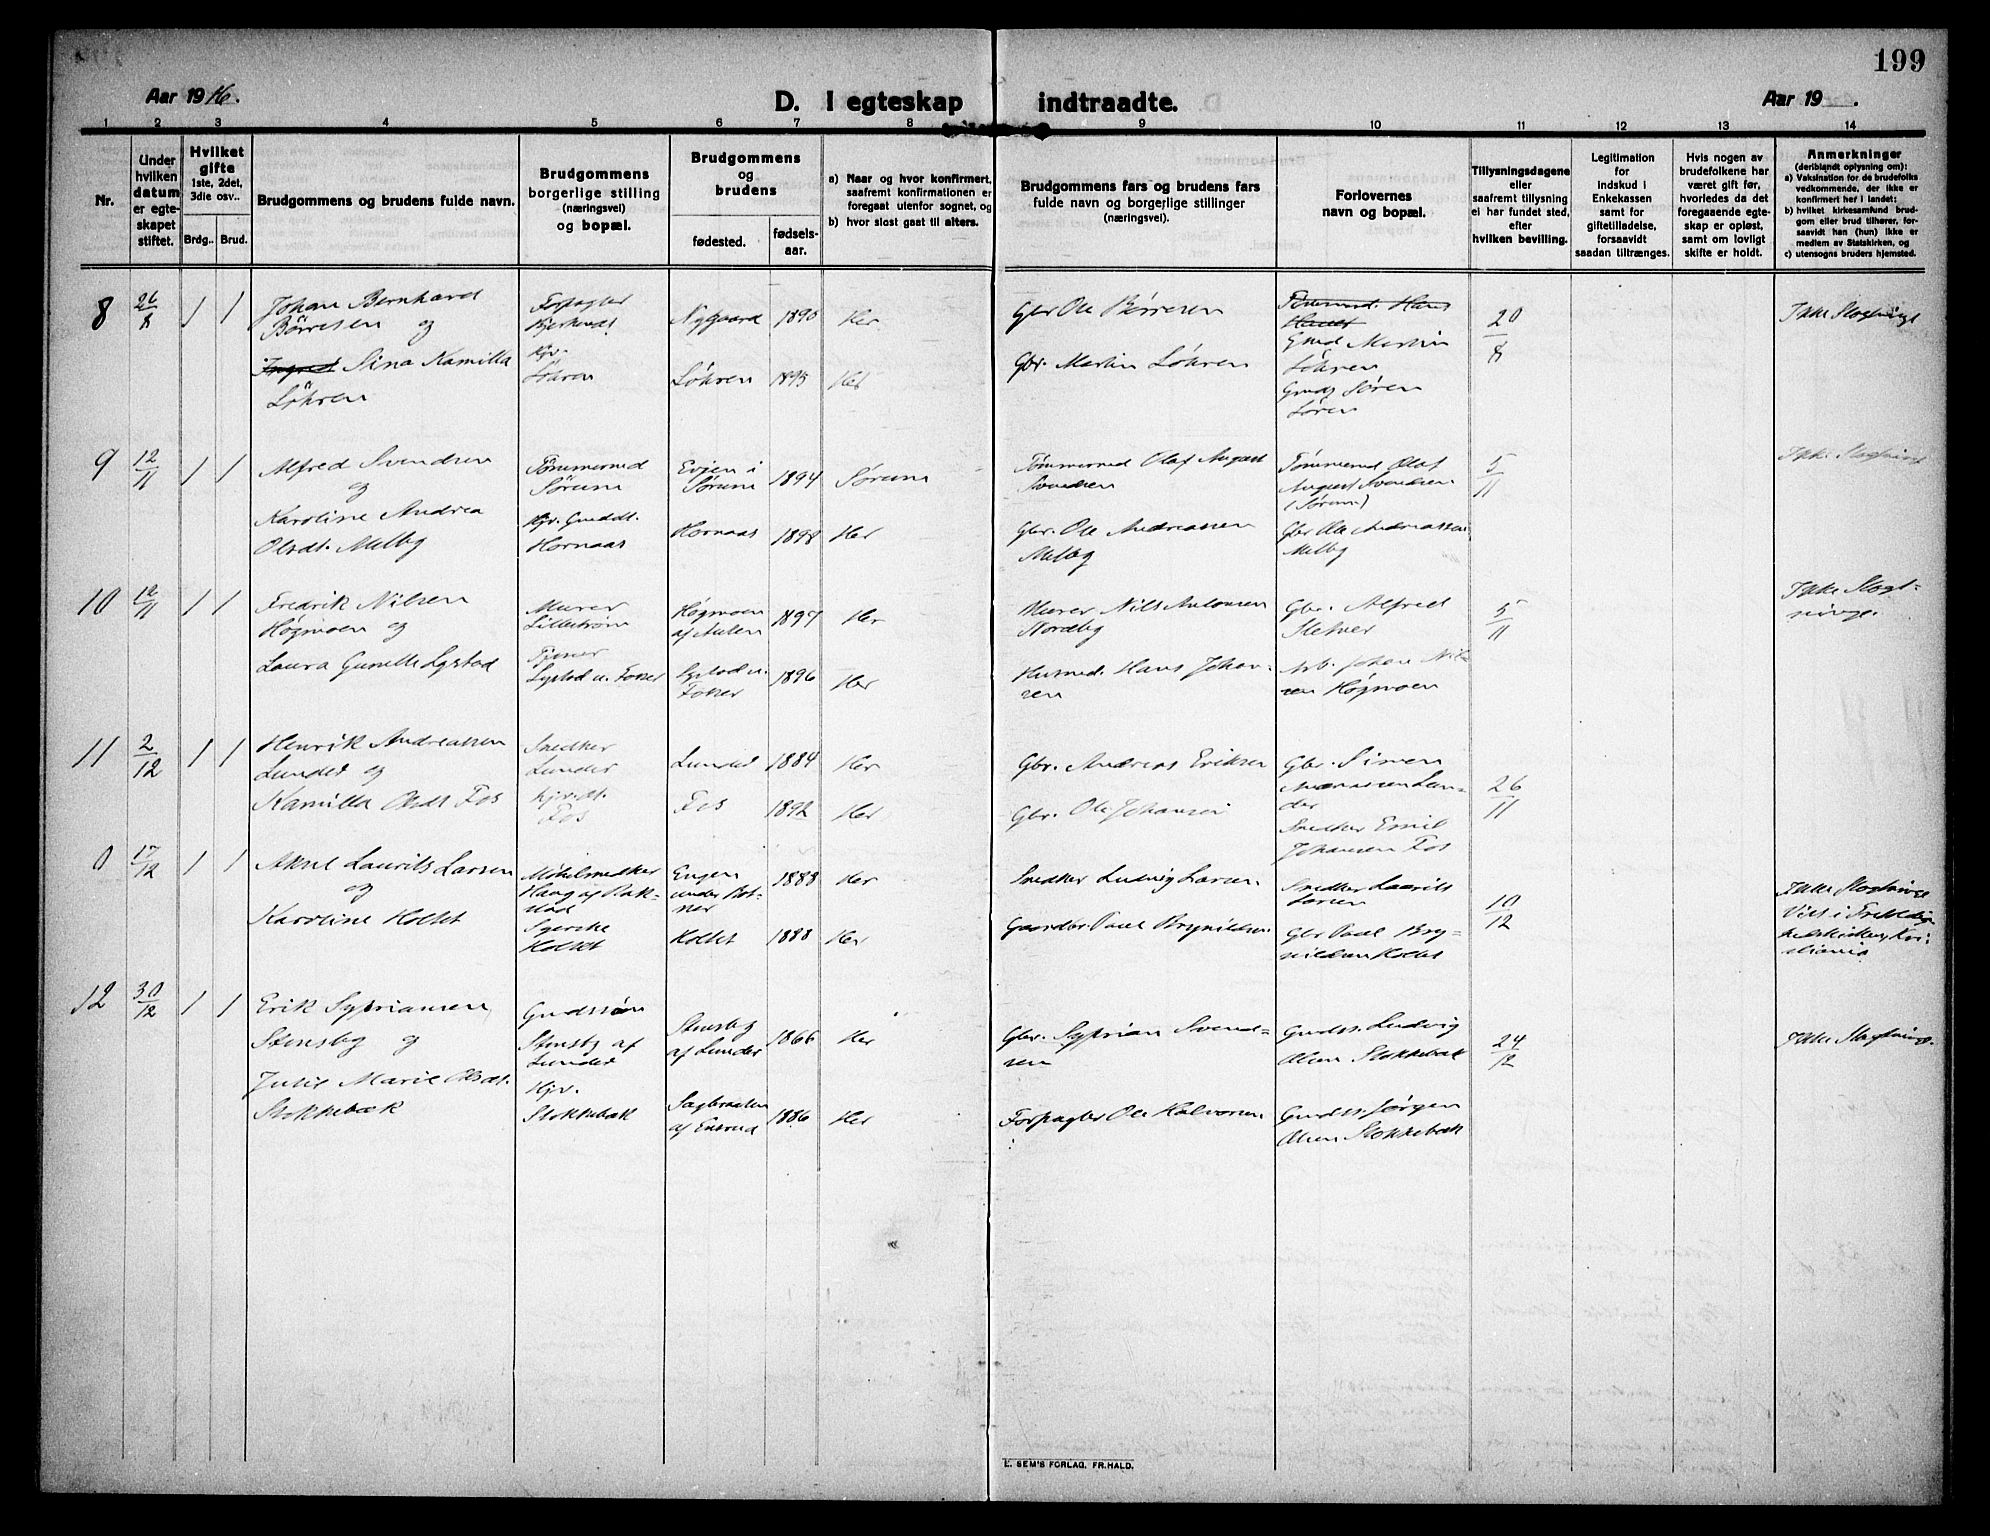 199
Aar 1916.
D. I egteskap indtraadte.
Aar 19 .
1 2 3 4 5 6 7 8 9 10 11 12 13 14
Nr.
Under hvilken datum er egteskapet stiftet.
Hvilket gifte
1ste, 2det, 3die osv..
Brdg.. Brud.
Brudgommens og brudens fulde navn.
Brudgommens borgerlige stilling (næringsvei) og bopæl.
Brudgommens og brudens
fødested.
fødselsaar.
a) Naar og hvor konfirmert, saafremt konfirmationen er foregaat utenfor sognet, og
b) hvor sidst gaat til alters.
Brudgommens fars og brudens fars fulde navn og borgerlige stillinger (næringsvei).
Forlovernes navn og bopæl.
Tillysningsdagene eller saafremt tillysning ei har fundet sted, efter hvilken bevilling.
Legitimation for indskud i Enkekassen samt for giftetilladelse, forsaavidt saadan tiltrænges.
Hvis nogen av brudefolkene har været gift før, hvorledes da det foregaaende egteskap er opløst, samt om lovligt skifte er holdt.
Anmerkninger
(deriblandt oplysning om):
a) Vaksination for de brudefolks vedkommende, der ikke er konfirmert her i landet;
b) hvilket kirkesamfund brudgom eller brud tilhører, forsaavidt han (hun) ikke er medlem av Statskirken, og
c) utensogns bruders hjemsted.
8 26/8 1 1 Johan Bernhard Börresen og
Forpagter
Nygaard 1890 Her
Gbr Ole Börresen
20/8
Ikke Slegtninge
Sina Kamilla Löhren
Hjv. Löhren
Löhren 1895 Her
Gbr. Martin Löhren
Gmd Martin Löhren
Sören
9 12/11 1 1 Alfred Svendsen og
Tömmermd Sörum
Evjen i Sörum 1894 Sörum
Tömmermd Olaf August Svendsen
Tömmermd Olaf August Svendsen (Sörum)
5/11
Ikke Slegtninge
Karoline Andrea Olsdt. Melby
Hornaas
Hornaas 1898 Her
Gbr. Ole Andreassen Melby
Gbr Ole Andreassen Melby
10 12/11 1 1 Fredrik Nilsen Høgmoen og
Murer Lillestrøm
Høgmoen 1897 Her
Murer Nils Antonsen Nordby
Gbr. Alfred
5/11
Ikke Slegtninge.
Laura Gunelle Lystad
Tjener Lystad u. Fosser
Lystad u. Fosser 1896 Her
Husmd. Hans Johansen
Arb. Johan Nilsen Høgmoen
11 2/12 1 1 Henrik Andreassen Lunder og
Snedker Lunder
Lunder 1884 Her
Gbr. Andreas Eriksen
Gbr. Simen Andreassen Lunder
26/11
Kamilla Olsdt Fos
Fos
Fos 1892 Her
Gbr. Ole Johansen
Snedker Emil Johansen Fos
0 17/12 1 1 Aksel Laurits Larsen og
Møbelsnedker Haug af Rakstad
Engen 1888 Her
Snedker Ludvig Larsen
Snedker Laurits Larsen
10/12
Ikke Slegtninge
Viet i
Karoline Holtet
Holtet
Holtet 1888 Her
Gaardbr. Paul Brynildsen
Gbr Paul Brynildsen Holtet
12 30/12 1 1 Erik Sypriansen Stensby og
Gmdssön Stensby af Lunder
Stensby af Lunder 1866 Her
Gbr. Syprian Svendsen
Gmdss. Ludvig Olsen Stokkebæk
24/12
Ikke Slegtninge.
Julie Marie Olsdt. Stokkebæk
Hjv. Stokkebæk
Sagbraaten 1886 Her
Forpagter Ole Halvorsen
Gmdss. Jørgen Olsen Stokkebæk
E. SEM'S FORLAG, FR.HALD.